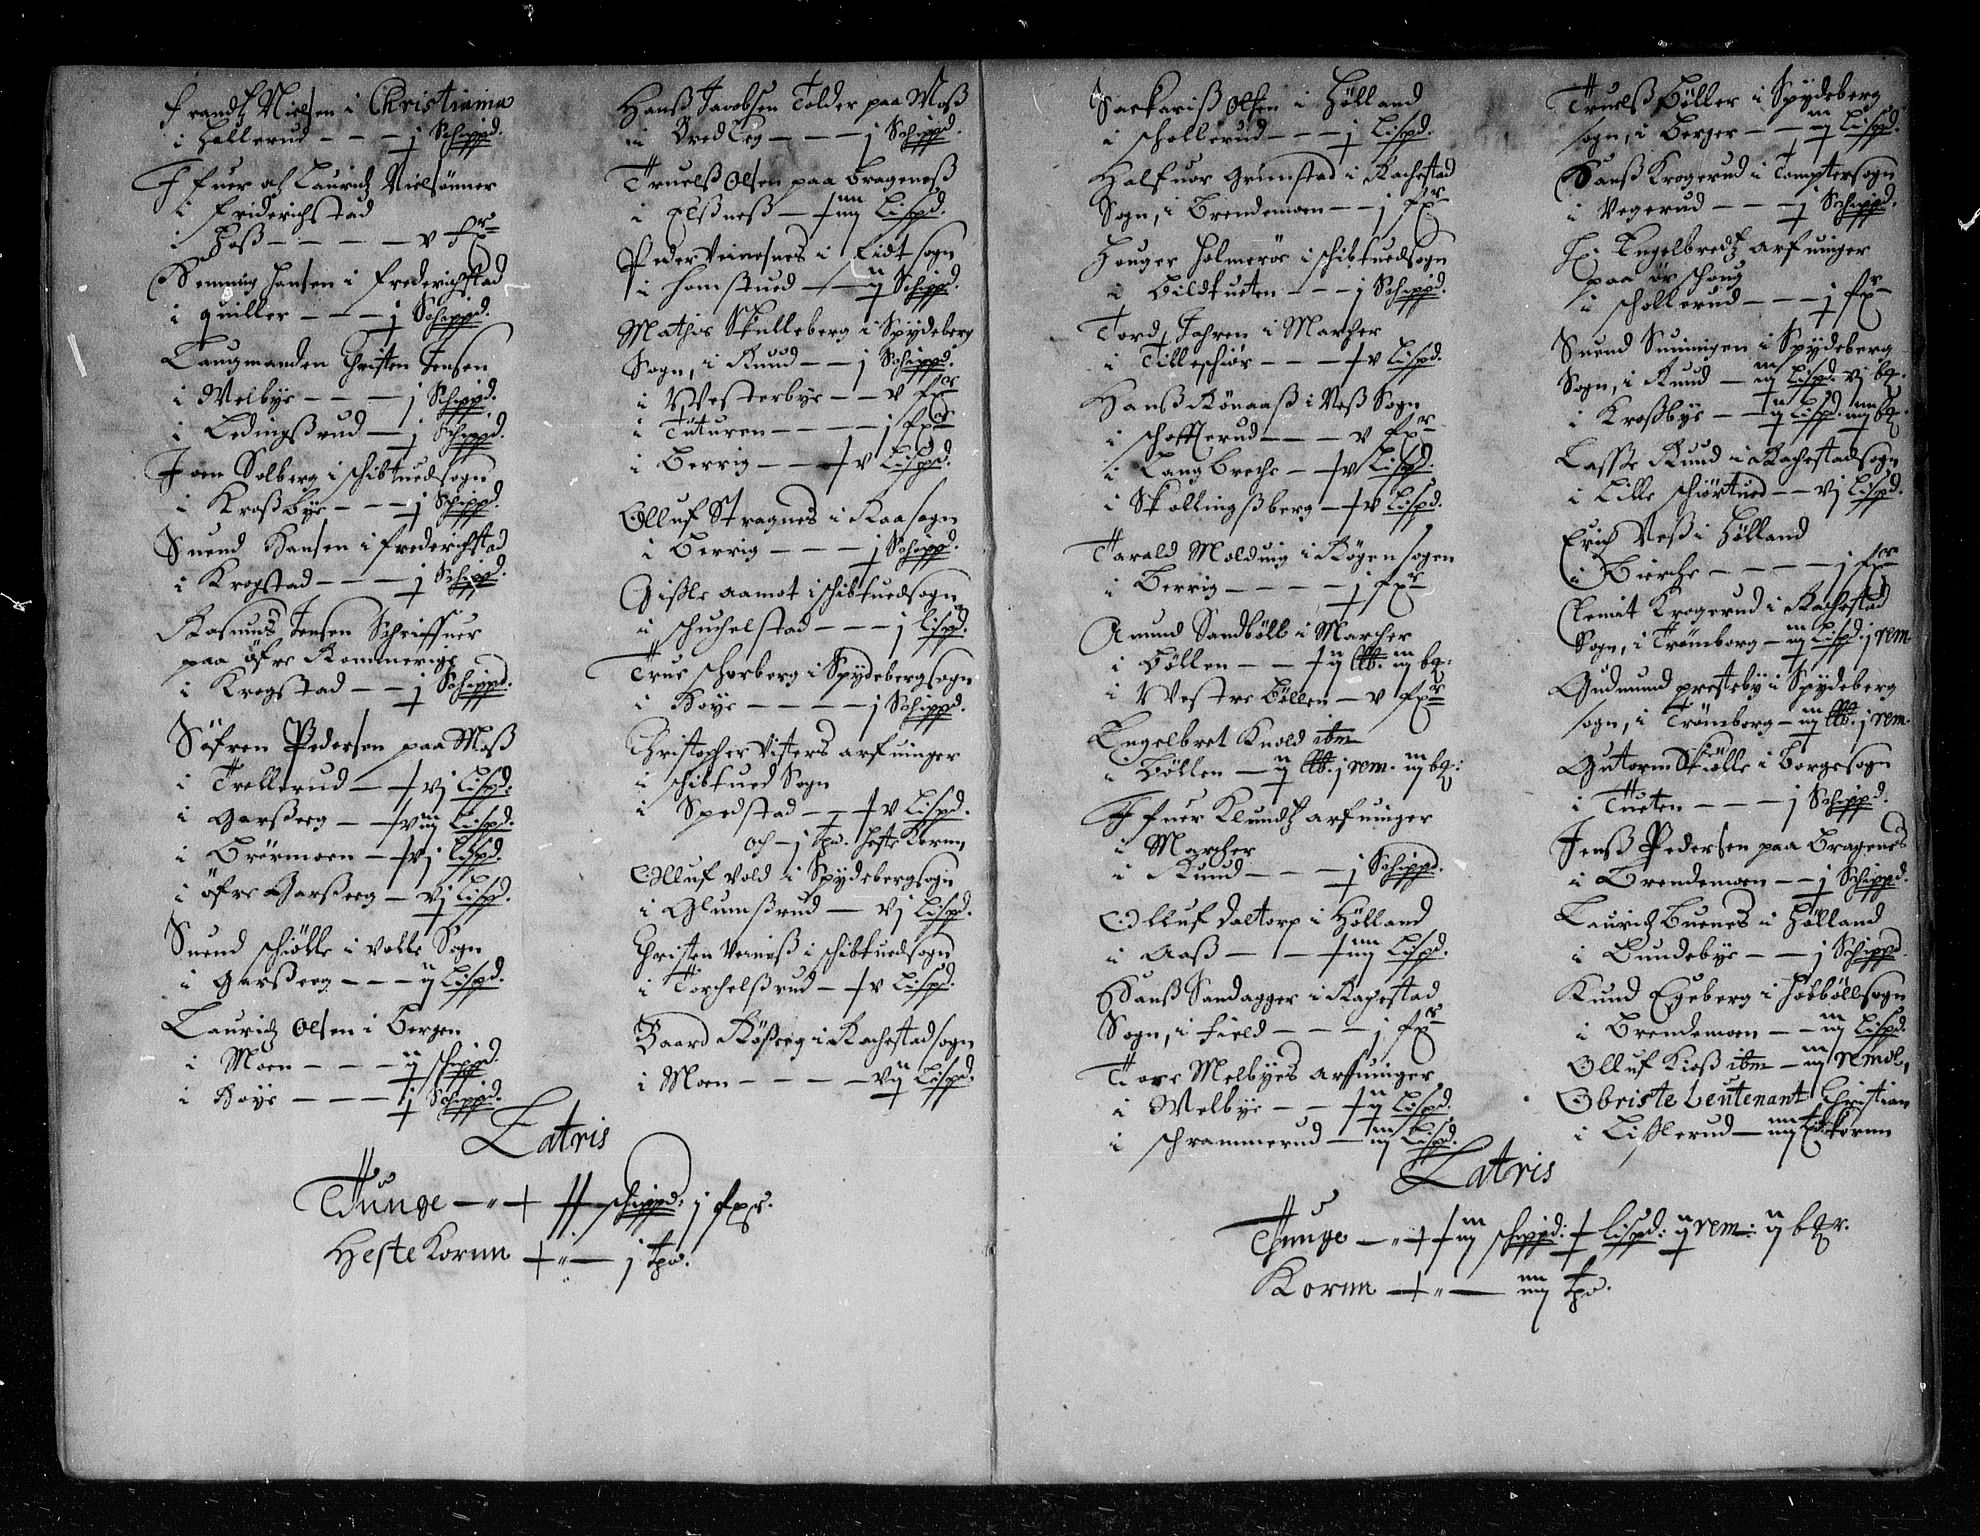 Frandtz Nielsen i Christiania
i Hallerud - - - j Schippd.
Ifuer oc Lauritz Nielsönner
i Friderichstad
i Foss - - - - - v fxr
Henning Hansen i Frederichstad
i quiller - - - j Schippd.
Laugmanden Christen Jensen
i Melbye - - - j Schippd.
i Ledingssrud - j Schippd.
Joen Solberg i Schibtuedsogn
i Krossbye - - - j Schippd.
Suend Hansen i Frederichstad
i Krogstad - - - j Schippd.
Rasmus Jensen Schriffuer
paa öfre Rommerige
i Krogstad - - j Schippd.
Söfren Pedersen paa Moss
i Trollerud - + vj Lispd.
i Garsseeg - + viij Lispd.
i Brörmoen - + vj Lispd.
i öfre Garsseeg - vj Lispd.
Suend schiölle i volle Sogn
i Garsseeg - - - ij Lispd.
Lauritz Olsen i Bergen
i Moen - - - ij schippd.
iBöye - - - j Schippd.
Hanss Jacobsen Tolder paa Moss
i Bredleg - - - j Schippd.
Truelss Olsen paa Brageness
i Elssness - + iiij Lispd.
Peder i Eidt sogn
i homstued - ij Schippd.
Mathis Skulleberg i Spydeberg
Sogn, i Ruud - - j Schippd.
i Westerbye - - v fxr
i Tuturen - - - - j fxr
i Berrig - - + v Lispd.
Olluf Stragnes i Raa sogn
i Berrig - - - j Schippd.
Gisle Aamot i schibtuedsogn
i schuchelstad - - - j Lispd.
True schorberg i Spydebergsogn
i Böye - - - - j Schippd.
Christopher Vitters arfuinger
i schibtued Sogn
i Spedstad - - + v Lispd.
och - j tpd. heste Kornn
Olluf Vold i Spydebergsogn
i Glumssrud - vj Lispd.
Christen Verness i schibtuedsogn
i Torchelssrud - + v Lispd.
Baard Rösseeg i Rachestadsogn
i Moen - - - - - vij Lispd.
Latris
Tunge - " + ++ schippd: j fxr.
Heste Kornn + " - j tpd.
Sackariss Olsen i Hölland
i schollerud - - - j Lispd.
Halfuor Grimstad i Rachestad
Sogn, i Brendemoen - - j fxr
Houger Holmeröe i schibtuedsogn
i Bildtueten - - - j Schippd.
Tord Jahren i Marcher
i Tilleschiör - - - + v Lispd.
Hanss Rönaass i Ness Sogn
i schofflerud - - - v fxr
i Langbreche - + v Lispd.
i Skollingssberg - + v Lispd.
Tarald Molduig i Rögen sogen
i Berrig - - - - j fxr
Amund Sandböll i Marcher
i Böllen - - + ij lb. iij bg:
i Westre Böllen - v fxr
Engelbret Knold ibm
i Böllen - ij lb. j rem. iij bg:
Ifuer Klundtz arfuinger
i Marcher
i Ruud - - - j Schippd.
Olluf Daltorp i Hölland
i Aass - - + iiij Lispd.
Hanss Sandagger i Rachestad
Sogn, i Field - - - j fxr
Tore Melbyes arfuinger
i Melbye - - + ij Lispd.
i schrammerud - + iij Lispd.
Latris
Tunge - " ++ iij schippd: + Lispd: ij rem: ij bgr.
Kornn + " - iiij tpd.
Truelss Böller i Spydeberg
sogn, i Berger - - iij Lispd.
Hanss Krogerud i Tomptersogn
i Vegerud - - - j Schippd.
H: Engelbredtz arfuinger
paa ör schoug
i schollerud - - - j fxr
Suend Suinigen i Spydeberg
Sogn, i Ruud - iij Lispd. vj bg.
i Krossbye - + ij Lispd. iiij bg:
Lasse Ruud i Rachestadsogn
i Lille schiörtued - - vj Lispd.
Erich Ness i Hölland
i Bierche - - - - j fxr
Clemit Krogerud i Rachestad
Sogn, i Trömborg - iij Lispd. j rem
Gudmund prestebye i Spydeberg
sogn, i Trömborg - iij lb. j rem.
Guttorm Skiölle i Borgesogn
i Tueten - - - j Schippd.
Jenss Pedersen paa Bragenes
i Brendemoen - - j Schippd.
Lauritz Buenes i Hölland
i Bundebye - - j Schippd
Knud Egeberg i Hobböllsogn
i Brendemoen - - iij Lispd.
Olluf Kioss ibm - iij remol,
Obriste Leutenant Christian
i Lisslerud - iiij tpd. kornn